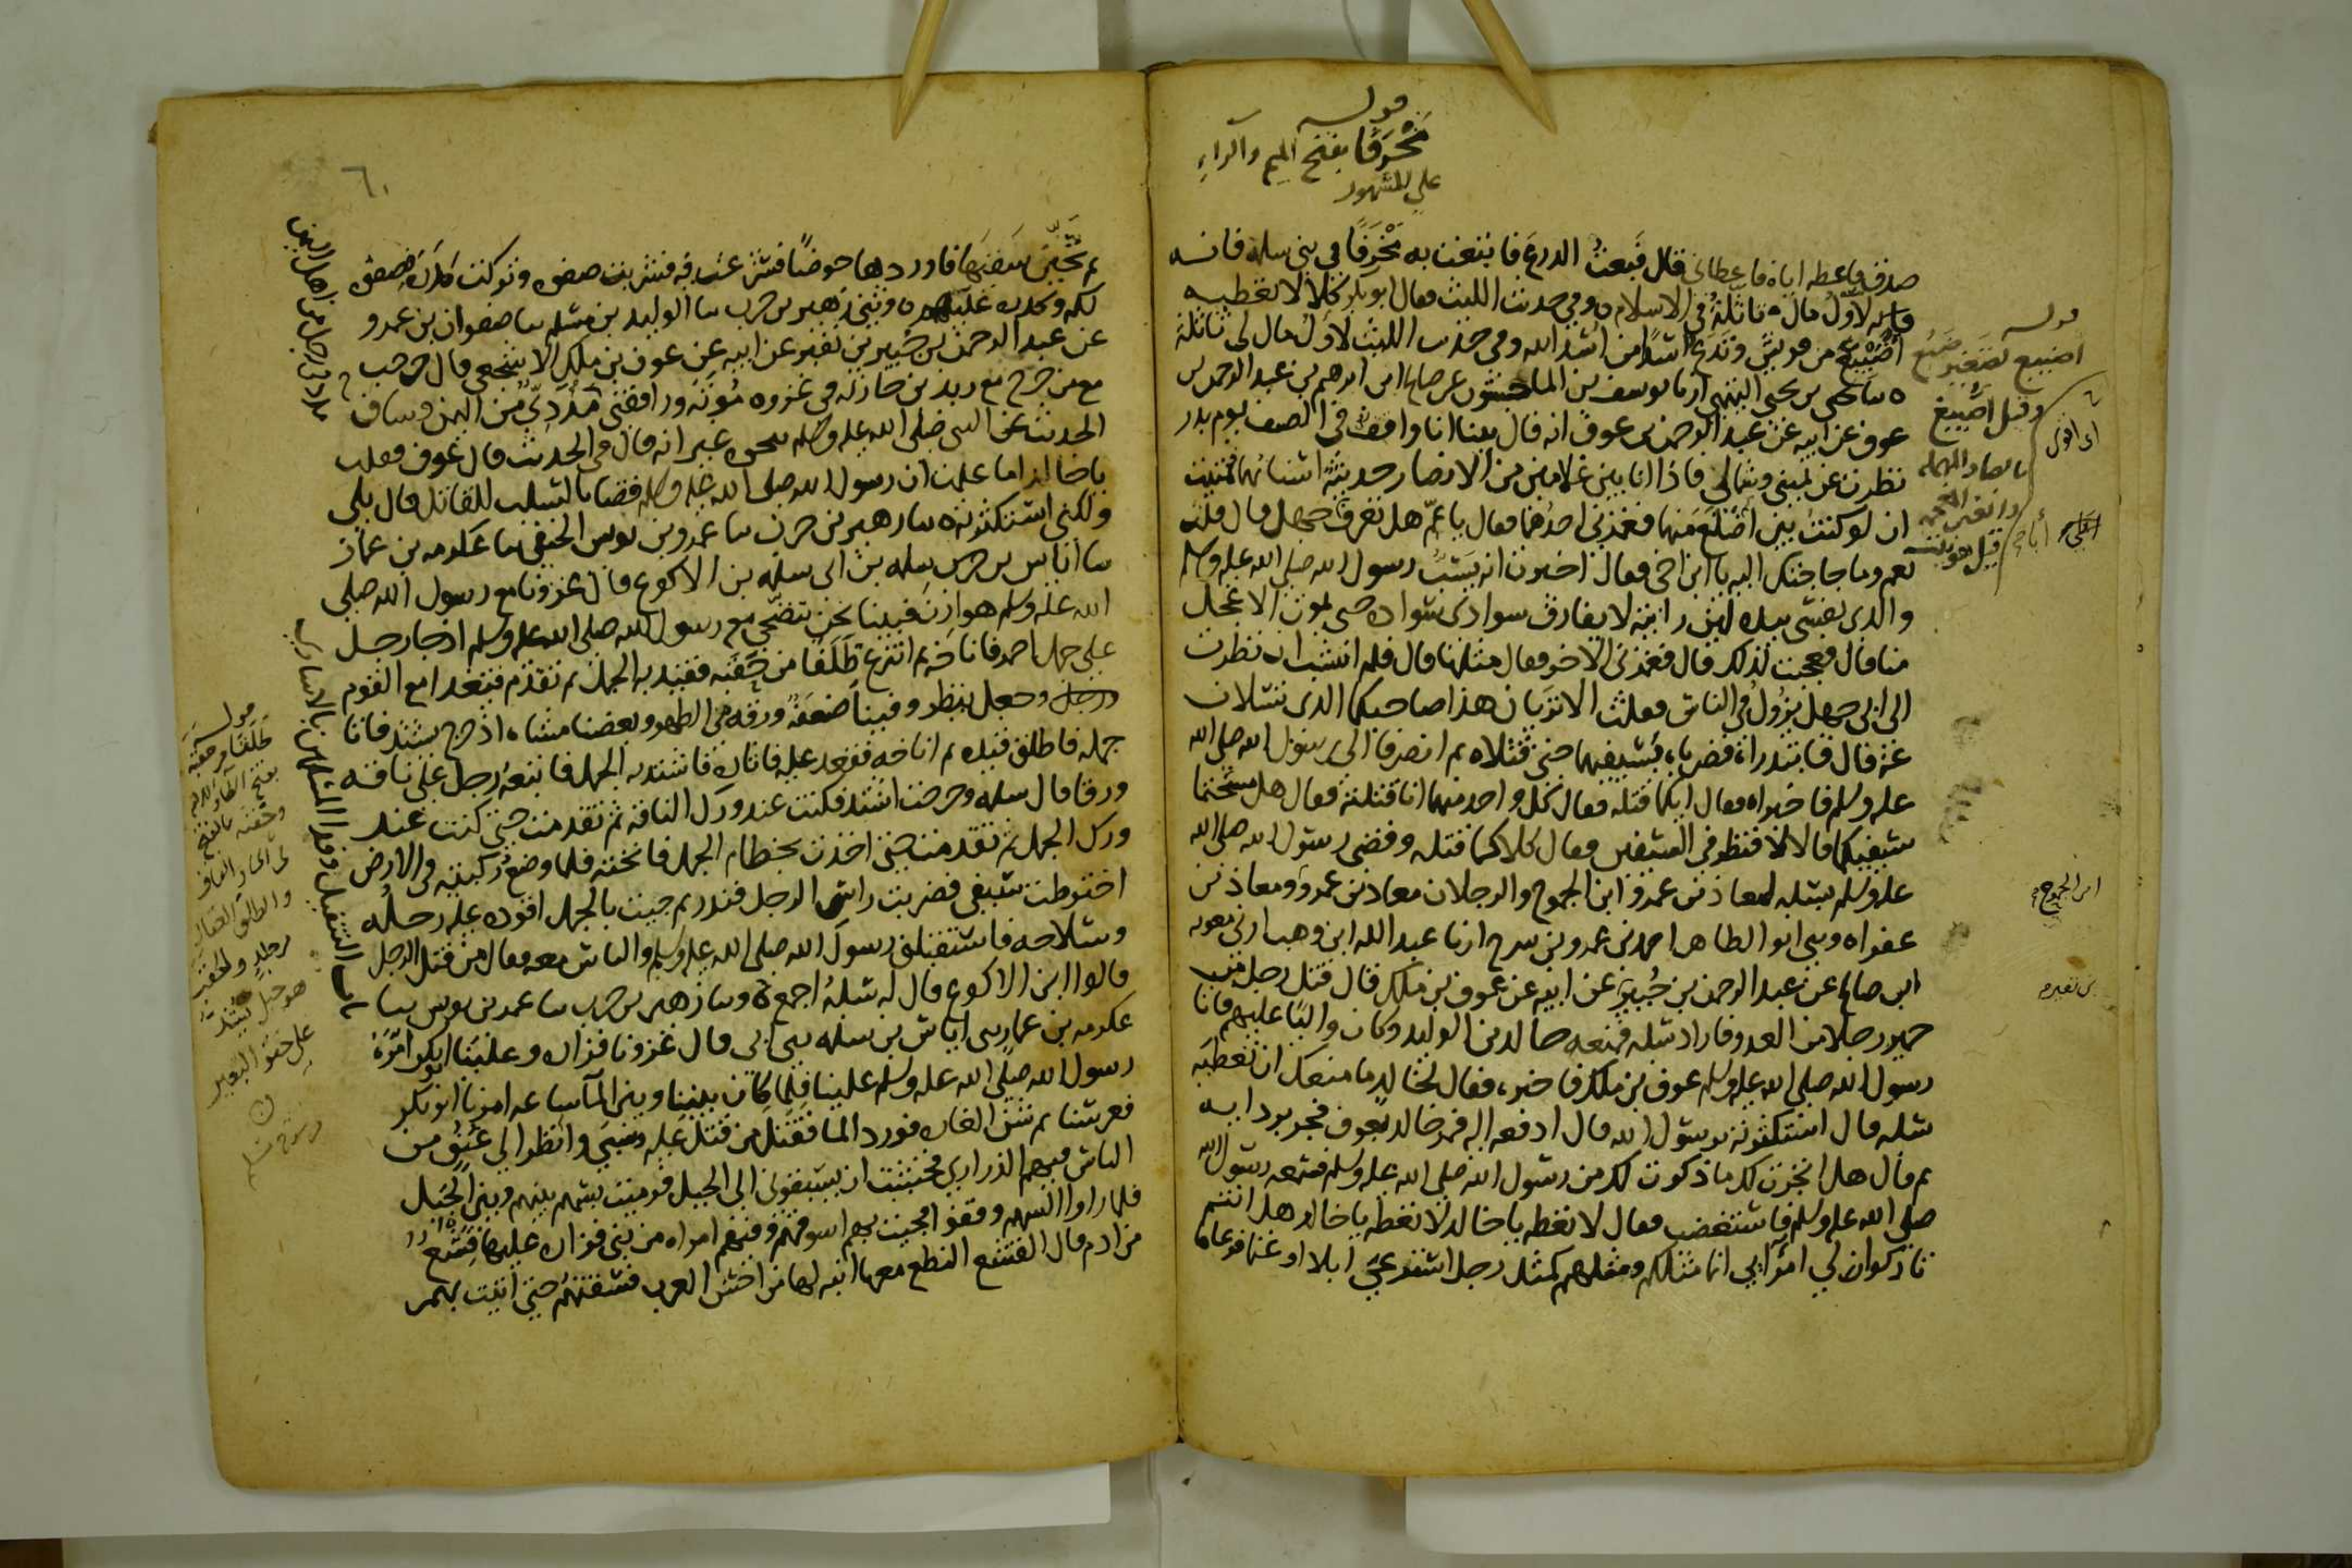 قوله
مَخْرَفًا بفتح الميم والراء
على المشهور
صدق فاعطه اياه فاعطاني قال فبعتُ الدرع فابتعت به مَخْرَفًا في بني سلمة فانه
لاول مال تاثلته في الاسلام وفي حديث الليث فقال ابو بكر كلا لا نعطيه
اُضَيْبِع من قريش وندع اسدًا من اُسْد الله وفي حديث الليث لاول مال تاثلته
يحيى بن يحيى التميمي انا يوسف بن الماجشون عن صالح ابن ابرهيم بن عبد الرحمن بن
عوف عن ابيه عن عبد الرحمن بن عوف انه قال بينا انا واقف في الصف يوم بدر
نظرت عن يميني وشمالي فاذا انا بين غلامين من الانصار حديثة اسنانهما تمنيت
ان لو كنت بين اضلع منهما فغمزني احدهما فقال يا عمّ هل تعرف ابا جهل قال قلت
نعم وما حاجتك اليه يا ابن اخي فقال اخبرت انه يسبّ رسول الله صلى الله عليه وسلم
والذي نفسي بيده لئن رايته لا يفارق سوادي سواده حتى يموت الاعجل
منا قال فعجبت لذلك قال فغمزني الاخر فقال مثلها قال فلم انشب ان نظرت
الى ابي جهل يزول في الناس فقلت الا تريان هذا صاحبكما الذي تسئلان
عنه قال فابتدراه فضرباه بسيفيهما حتى قتلاه ثم انصرفا الى رسول الله صلى الله
عليه وسلم فاخبراه فقال ايكما قتله فقال كل واحد منهما انا قتلته فقال هل مسحتما
سيفيكما قالا لا فنظر في السيفين فقال كلاكما قتله وقضى رسول الله صلى الله
عليه وسلم بسلبه لمعاذ بن عمرو ابن الجموح والرجلان معاذ بن عمرو ومعاذ بن
عفراء وحدثني ابو الطاهر احمد بن عمرو بن سرح انا عبد الله ابن وهب اخبرني معوية
ابن صالح عن عبد الرحمن بن جُبير عن ابيه عن عوف بن ملك قال قتل رجل من
حمير رجلا من العدو فاراد سلبه فمنعه خالد بن الوليد وكان واليا عليهم فاتا
رسول الله صلى الله عليه وسلم عوف بن ملك فاخبره فقال لخالد ما منعك ان تعطيه
سلبه قال استكثرته يرسول الله قال ادفعه اليه فمر خالد بعوف فجر بردايه
ثم قال هل انجزت لك ما ذكرت لك من رسول الله صلى الله عليه وسلم فسمعه رسول الله
صلى الله عليه وسلم فاستغضب فقال لا تعطه يا خالد لا تعطه يا خالد هل انتم
تاركوا لي امرآيي انما مثلكم ومثلهم كمثل رجل استرعي ابلا او غنما فرعاها
قوله
اضيبع تصغير ضبع
وقيل اُصَيبغ
بالصاد المهملة
والغين المعجمة
ابن الجموح
بن نفير
٦٠
ثم تحيّن سقيها فاوردها حوضًا فشرعت فيه فشربت صفوه وتركت كدره فصفوه
لكم وكدره عليهم وحدثني زهير بن حرب نا الوليد بن مسلم نا صفوان بن عمرو
عن عبد الرحمن بن جُبير بن نفير عن ابيه عن عوف بن ملك الاشجعي قال خرجت
مع من خرج مع زيد بن حارثة في غزوة مُوتَة ورافقني مَدَدِيّ من اليمن وساق
الحديث عن النبي صلى الله عليه وسلم بنحوه غير انه قال في الحديث قال عوف فقلت
يا خالد اما علمت ان رسول الله صلى الله عليه وسلم قضا بالسلب للقاتل قال بلى
ولكني استكثرته نا زهير بن حرب نا عمرو بن يونس الحنفي نا عكرمة بن عمار
نا اياس بن سلمة حدثني ابي سلمة بن الاكوع قال غزونا مع رسول الله صلى
الله عليه وسلم هوازن فبينا نحن نتضحى مع رسول الله صلى الله عليه وسلم اذ جا رجل
على جمل احمر فاناخه ثم انتزع طَلَقا من حَقَبه فقيد به الجمل ثم تقدم فتغدا مع القوم
وجعل ينظر وفينا ضَعفَة ورقة من الظهر وبعضنا مشاة اذ خرج يشتد فاتا
جمله فاطلق قيده ثم اناخه فقعد عليه فاثاره فاشتد به الجمل فاتبعه رجل على ناقة
ورقا قال سلمة وخرجت اشتد فكنت عند ورك الناقة ثم تقدمت حتى كنت عند
ورك الجمل ثم تقدمت حتى اخذت بخطام الجمل فانخته فلما وضع ركبتيه في الارض
اخترطت سيفي فضربت راس الرجل فندر ثم جيت بالجمل اقوده عليه رحله
وسلاحه فاستقبلني رسول الله صلى الله عليه وسلم والناس معه فقال من قتل الرجل
قالوا ابن الاكوع قال له سلبه اجمع وحدثنا زهير بن حرب نا عمر بن يونس نا
عكرمة بن عمار حدثني اياس بن سلمة حدثني ابي قال غزونا فزارة وعلينا ابو بكر امّرَهُ
رسول الله صلى الله عليه وسلم علينا فلما كان بيننا وبين المآ ساعة امرنا ابو بكر
فعرسنا ثم شن الغارة فورد الما فقتل من قتل عليه وسبي وانظر الى عنق من
الناس فيهم الذراري فخشيت ان يسبقوني الى الجبل فرميت بسهم بينهم وبين الجبل
فلما راوا السهم وقفوا فجيت بهم اسوقهم وفيهم امراة من بني فزارة عليها قشع
من ادم قال القشع النطع معها ابنة لها من احسن العرب فسقتهم حتى اتيت بهم
قوله
طلقًا من حقبه
وحقبه بالفتح
هو حبل يشد
على حقو البعير